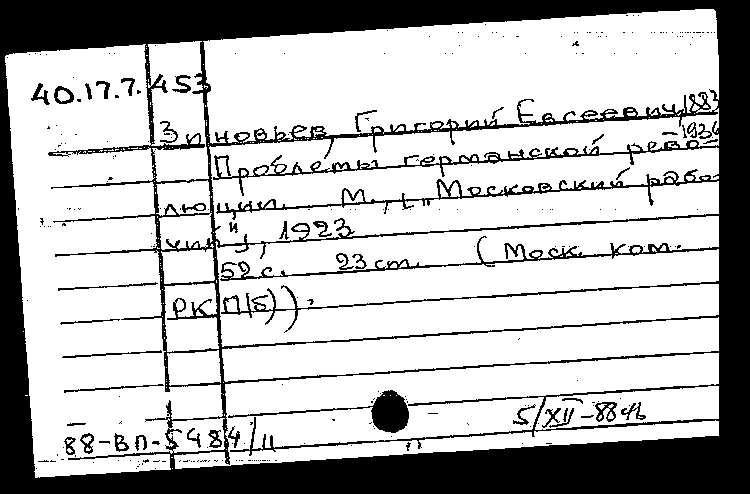 40.17.7.453
Зиновьев, Григорий Евсеевич, 1883
-1936
Проблемы германской рево-
люции. М., [„Московский рабо-
чий"], 1923
52 с. 23 cm. (Моск. ком.
РКП(б)).
5/XII-88
88-ВП-5484/11